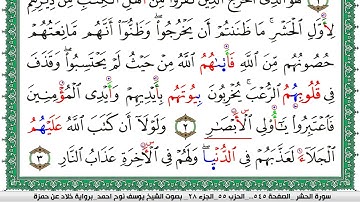 هُوَ ٱلَّذِىٓ أَخْرَجَ ٱلَّذِينَ كَفَرُوا۟ مِنْ أَهْلِ ٱلْكِتَٰبِ مِن دِيَٰرِهِمْ
لِأَوَّلِ ٱلْحَشْرِ ۚ مَا ظَنَنتُمْ أَن يَخْرُجُوا۟ ۖ وَظَنُّوٓا۟ أَنَّهُم مَّانِعَتُهُمْ
حُصُونُهُم مِّنَ ٱللَّهِ فَأَتَىٰهُمُ ٱللَّهُ مِنْ حَيْثُ لَمْ يَحْتَسِبُوا۟ ۖ وَقَذَفَ
فِى قُلُوبِهِمُ ٱلرُّعْبَ ۚ يُخْرِبُونَ بُيُوتَهُم بِأَيْدِيهِمْ وَأَيْدِى ٱلْمُؤْمِنِينَ
فَٱعْتَبِرُوا۟ يَٰٓأُو۟لِى ٱلْأَبْصَٰرِ ٢ وَلَوْلَآ أَن كَتَبَ ٱللَّهُ عَلَيْهُمُ
ٱلْجَلَآءَ لَعَذَّبَهُمْ فِى ٱلدُّنْيَا ۖ وَلَهُمْ فِى ٱلْـَٔاخِرَةِ عَذَابُ ٱلنَّارِ ٣
سورة الحشر _الصفحة ٥٤٥_ الحزب ٥٥_الجزء ٢٨_ بصوت الشيخ يوسف نوح احمد_برواية خلاد عن حمزة